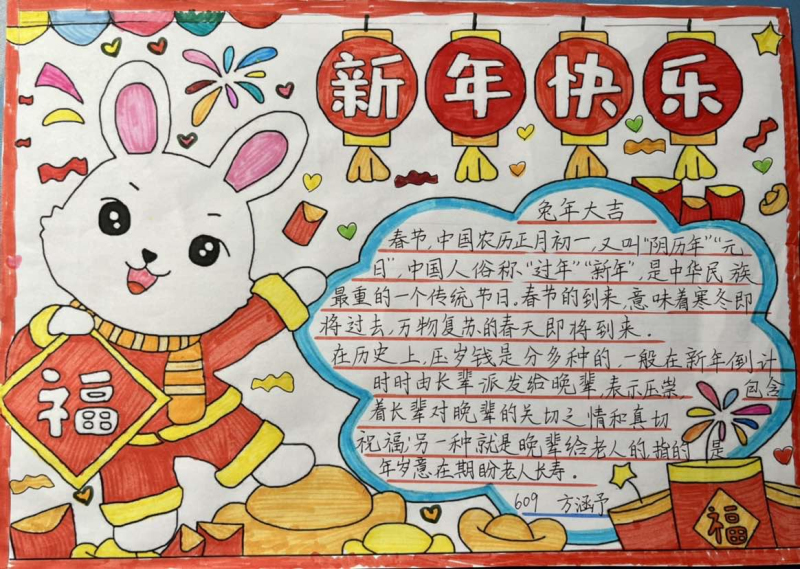 新年快乐
兔年大吉
春节,中国农历正月初一,又叫"阴历年""元
日",中国人俗称"过年""新年",是中华民族
最重的一个传统节日.春节的到来,意味着寒冬即
将过去,万物复苏的春天即将到来.
在历史上,压岁钱是分多种的,一般在新年倒计
时时由长辈派发给晚辈,表示压祟, 包含
着长辈对晚辈的关切之情和真切
祝福;另一种就是晚辈给老人的,指的 是
年岁意在期盼老人长寿.
609 方涵予
福
福